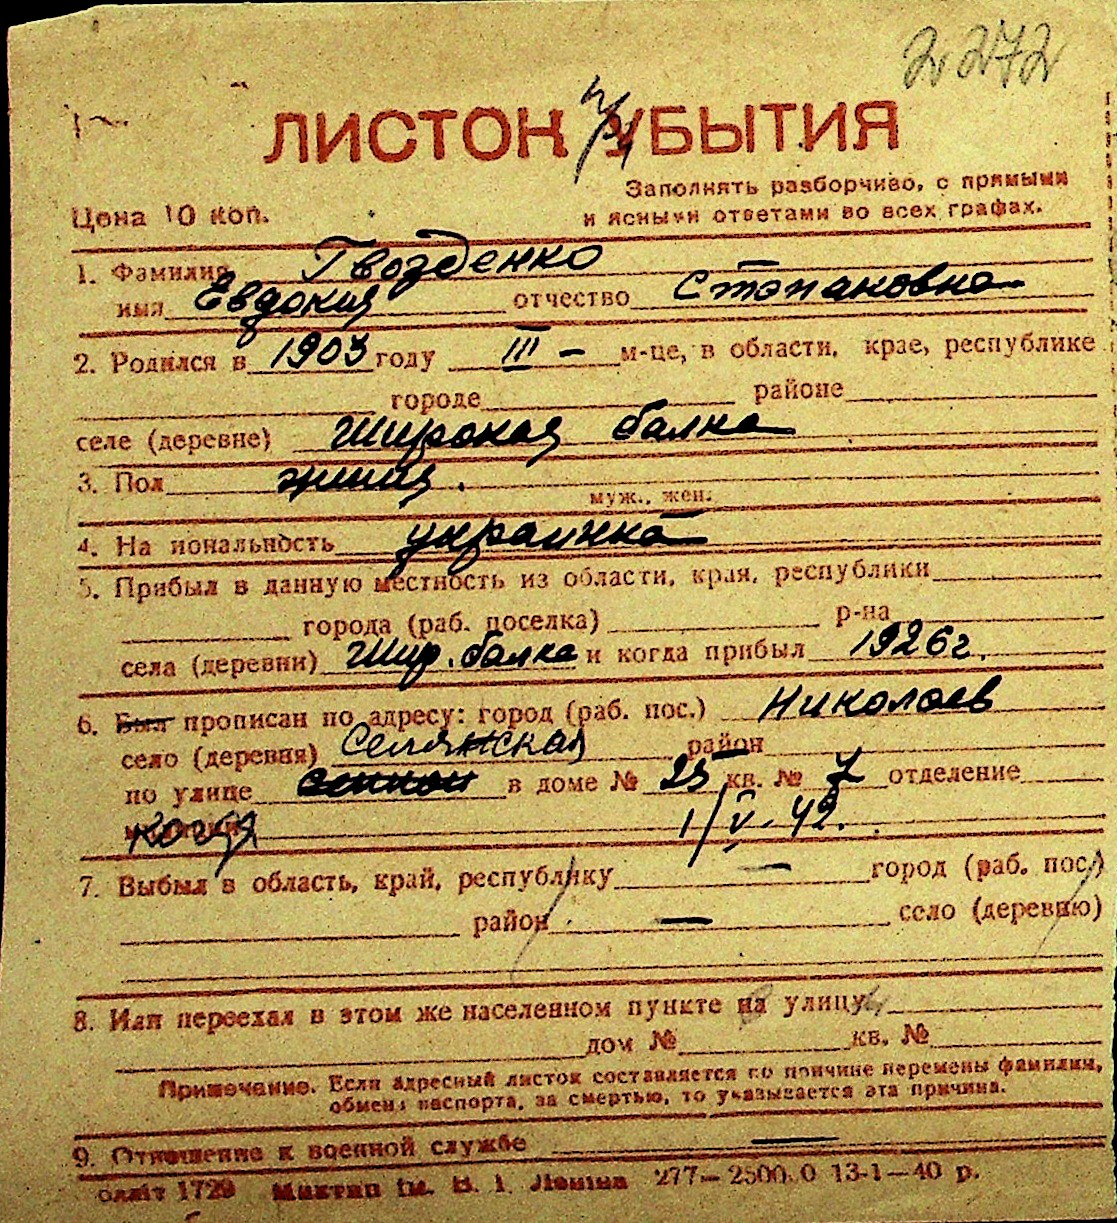 2272
ЛИСТОК УБЫТИЯ
Заполнять разборчиво, с прямыми
Цена 10 коп.
и ясными ответами во всех графах.
1. Фамилия Гвозденко
имя Евдокия отчество Степановна
2. Родился в 1903 году III – м-це, в области, крае, республике
городе районе
селе (деревне) Широкая балка
3. Пол женщ.
муж., жен.
4. На иональность украинка
5. Прибыл в данную местность из области, края, республики
города (раб. поселка) р-на
села (деревни) Шир. балка и когда прибыл 1926 г.
6. Был прописан по адресу: город (раб. пос.) Николаев
село (деревня) Селянская район
по улице в доме № 25 кв. № 7 отделение
когда 1/V. 42.
7. Выбыл в область, край, республику — город (раб. пос.)
район — село (деревню)
8. Или переехал в этом же населенном пункте на улицу
дом № кв. №
Примечание. Если адресный листок составляется по причине перемены фамилии,
обмена паспорта, за смертью, то указывается эта причина.
9. Отношение к военной службе —
1729 Миктип ім. В. І. Леніна 277—2500.0 13-1—40 р.